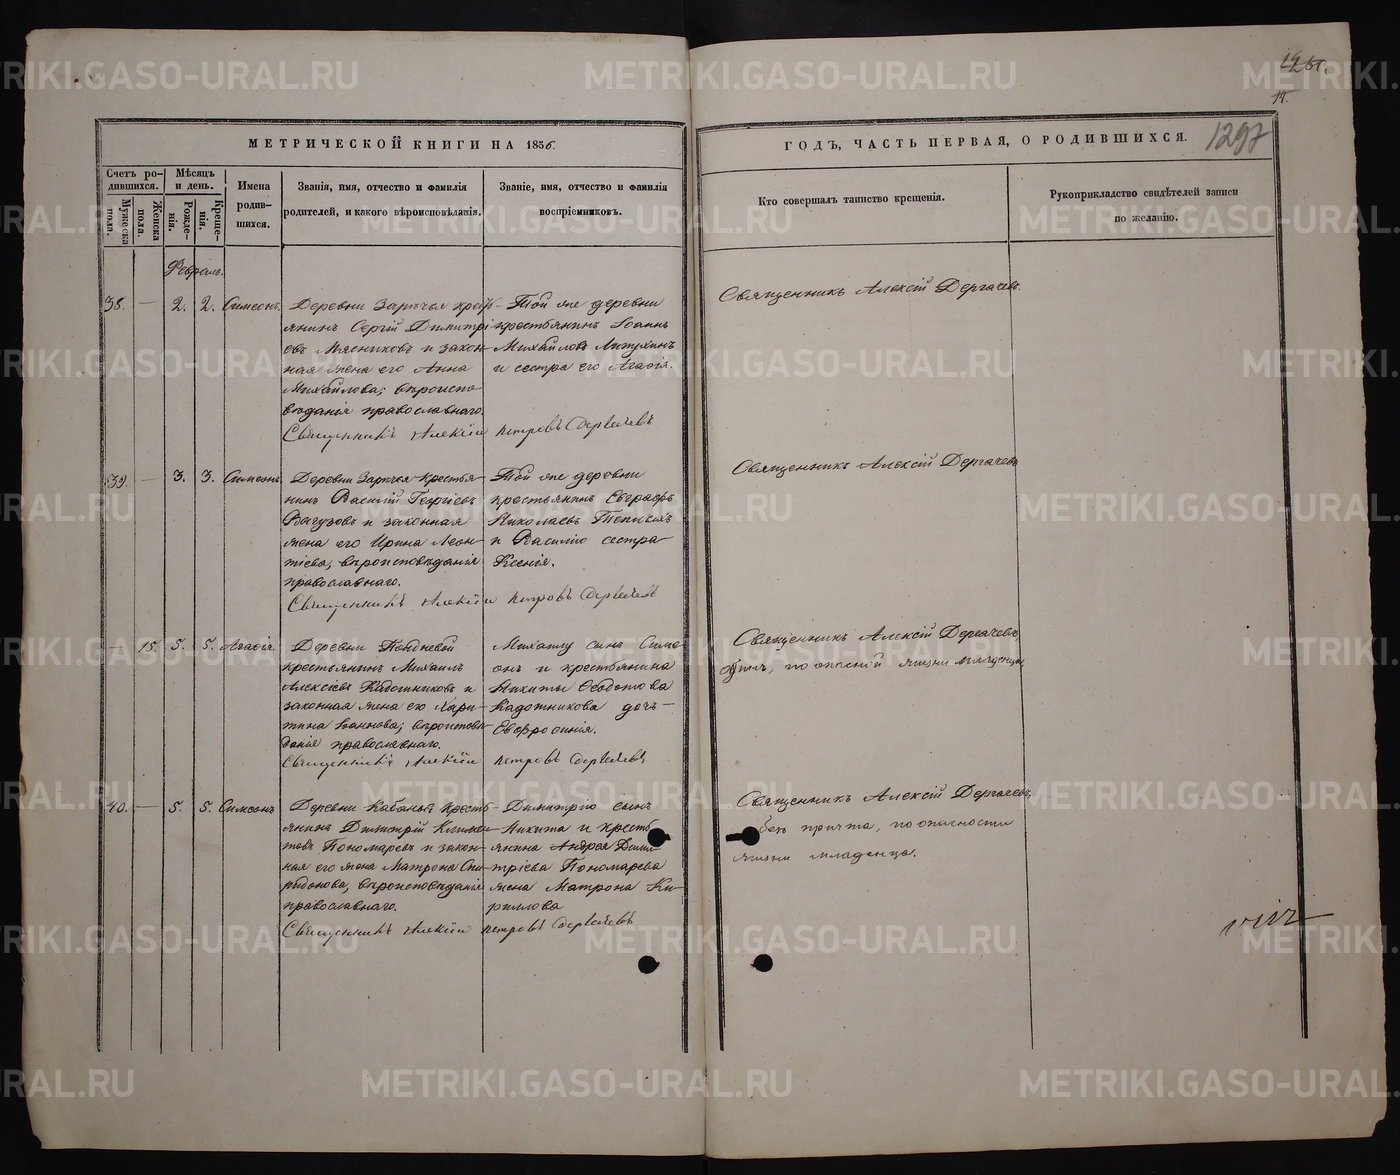 METRIKI.GASO-URAL.RU
1297
14.
МЕТРИЧЕСКОЙ КНИГИ НА 1856
ГОДЪ, ЧАСТЬ ПЕРВАЯ, О РОДИВШИХСЯ.
Счетъ ро-
дившихся.
Мужеска
пола.
Женска
пола.
Мѣсяцъ
и день.
Рожде-
нія.
Креще-
нія.
Имена
родив-
шихся.
Званія, имя, отчество и фамилія
родителей, и какого вѣроисповѣданія.
Званіе, имя, отчество и фамилія
воспріемниковъ.
Кто совершалъ таинство крещенія.
Рукоприкладство свидѣтелей записи
по желанію.
Февраль.
38. — 2. 2. Симеонъ.
Деревни Зарѣчья крест-
янинъ Сергій Димитрі-
евъ Мясниковъ и закон-
ная жена его Анна
Михайлова; вѣроиспо-
вѣданія православнаго.
Священникъ Алексій Петровъ Дергачевъ
Той же деревни
крестьянинъ Іоаннъ
Михайловъ
и сестра его Агафія.
Священникъ Алексій Дергачевъ.
39. — 3. 3. Симеонъ.
Деревни Зарѣчья крестья-
нинъ Василій Георгіевъ
и законная
жена его Ирина Леон-
тіева, вѣроисповѣданія
православнаго.
Священникъ Алексій Петровъ Дергачевъ
Той же деревни
крестьянинъ Евграфъ
Николаевъ
и Василію сестра
Ксенія.
Священникъ Алексій Дергачевъ
— 15. 5. 5. Агафія.
Деревни
крестьянинъ Михаилъ
Алексіевъ Кадошниковъ и
законная жена его Хари-
тина Іоаннова; вѣроисповѣ-
данія православнаго.
Священникъ Алексій Петровъ Дергачевъ
Михаилу сына Симе-
онъ и крестьянина
Никиты Ѳеодотова
Кадошникова дочь
Евфросинія.
Священникъ Алексій Дергачевъ
по опасной жизни младенца
40. — 5. 5. Симеонъ
Деревни Кабаньей крестья-
янинъ Димитрій
Пономаревъ и закон-
ная его жена Матрона Спи-
ридонова, вѣроисповѣданія
православнаго.
Священникъ Алексій Петровъ Дергачевъ
Димитрію сынъ
Никита и кресть-
янина Андрея Дими-
тріева Пономарева
жена Матрона Ки-
риллова
Священникъ Алексій Дергачевъ,
безъ причта, по опасности
жизни младенца.